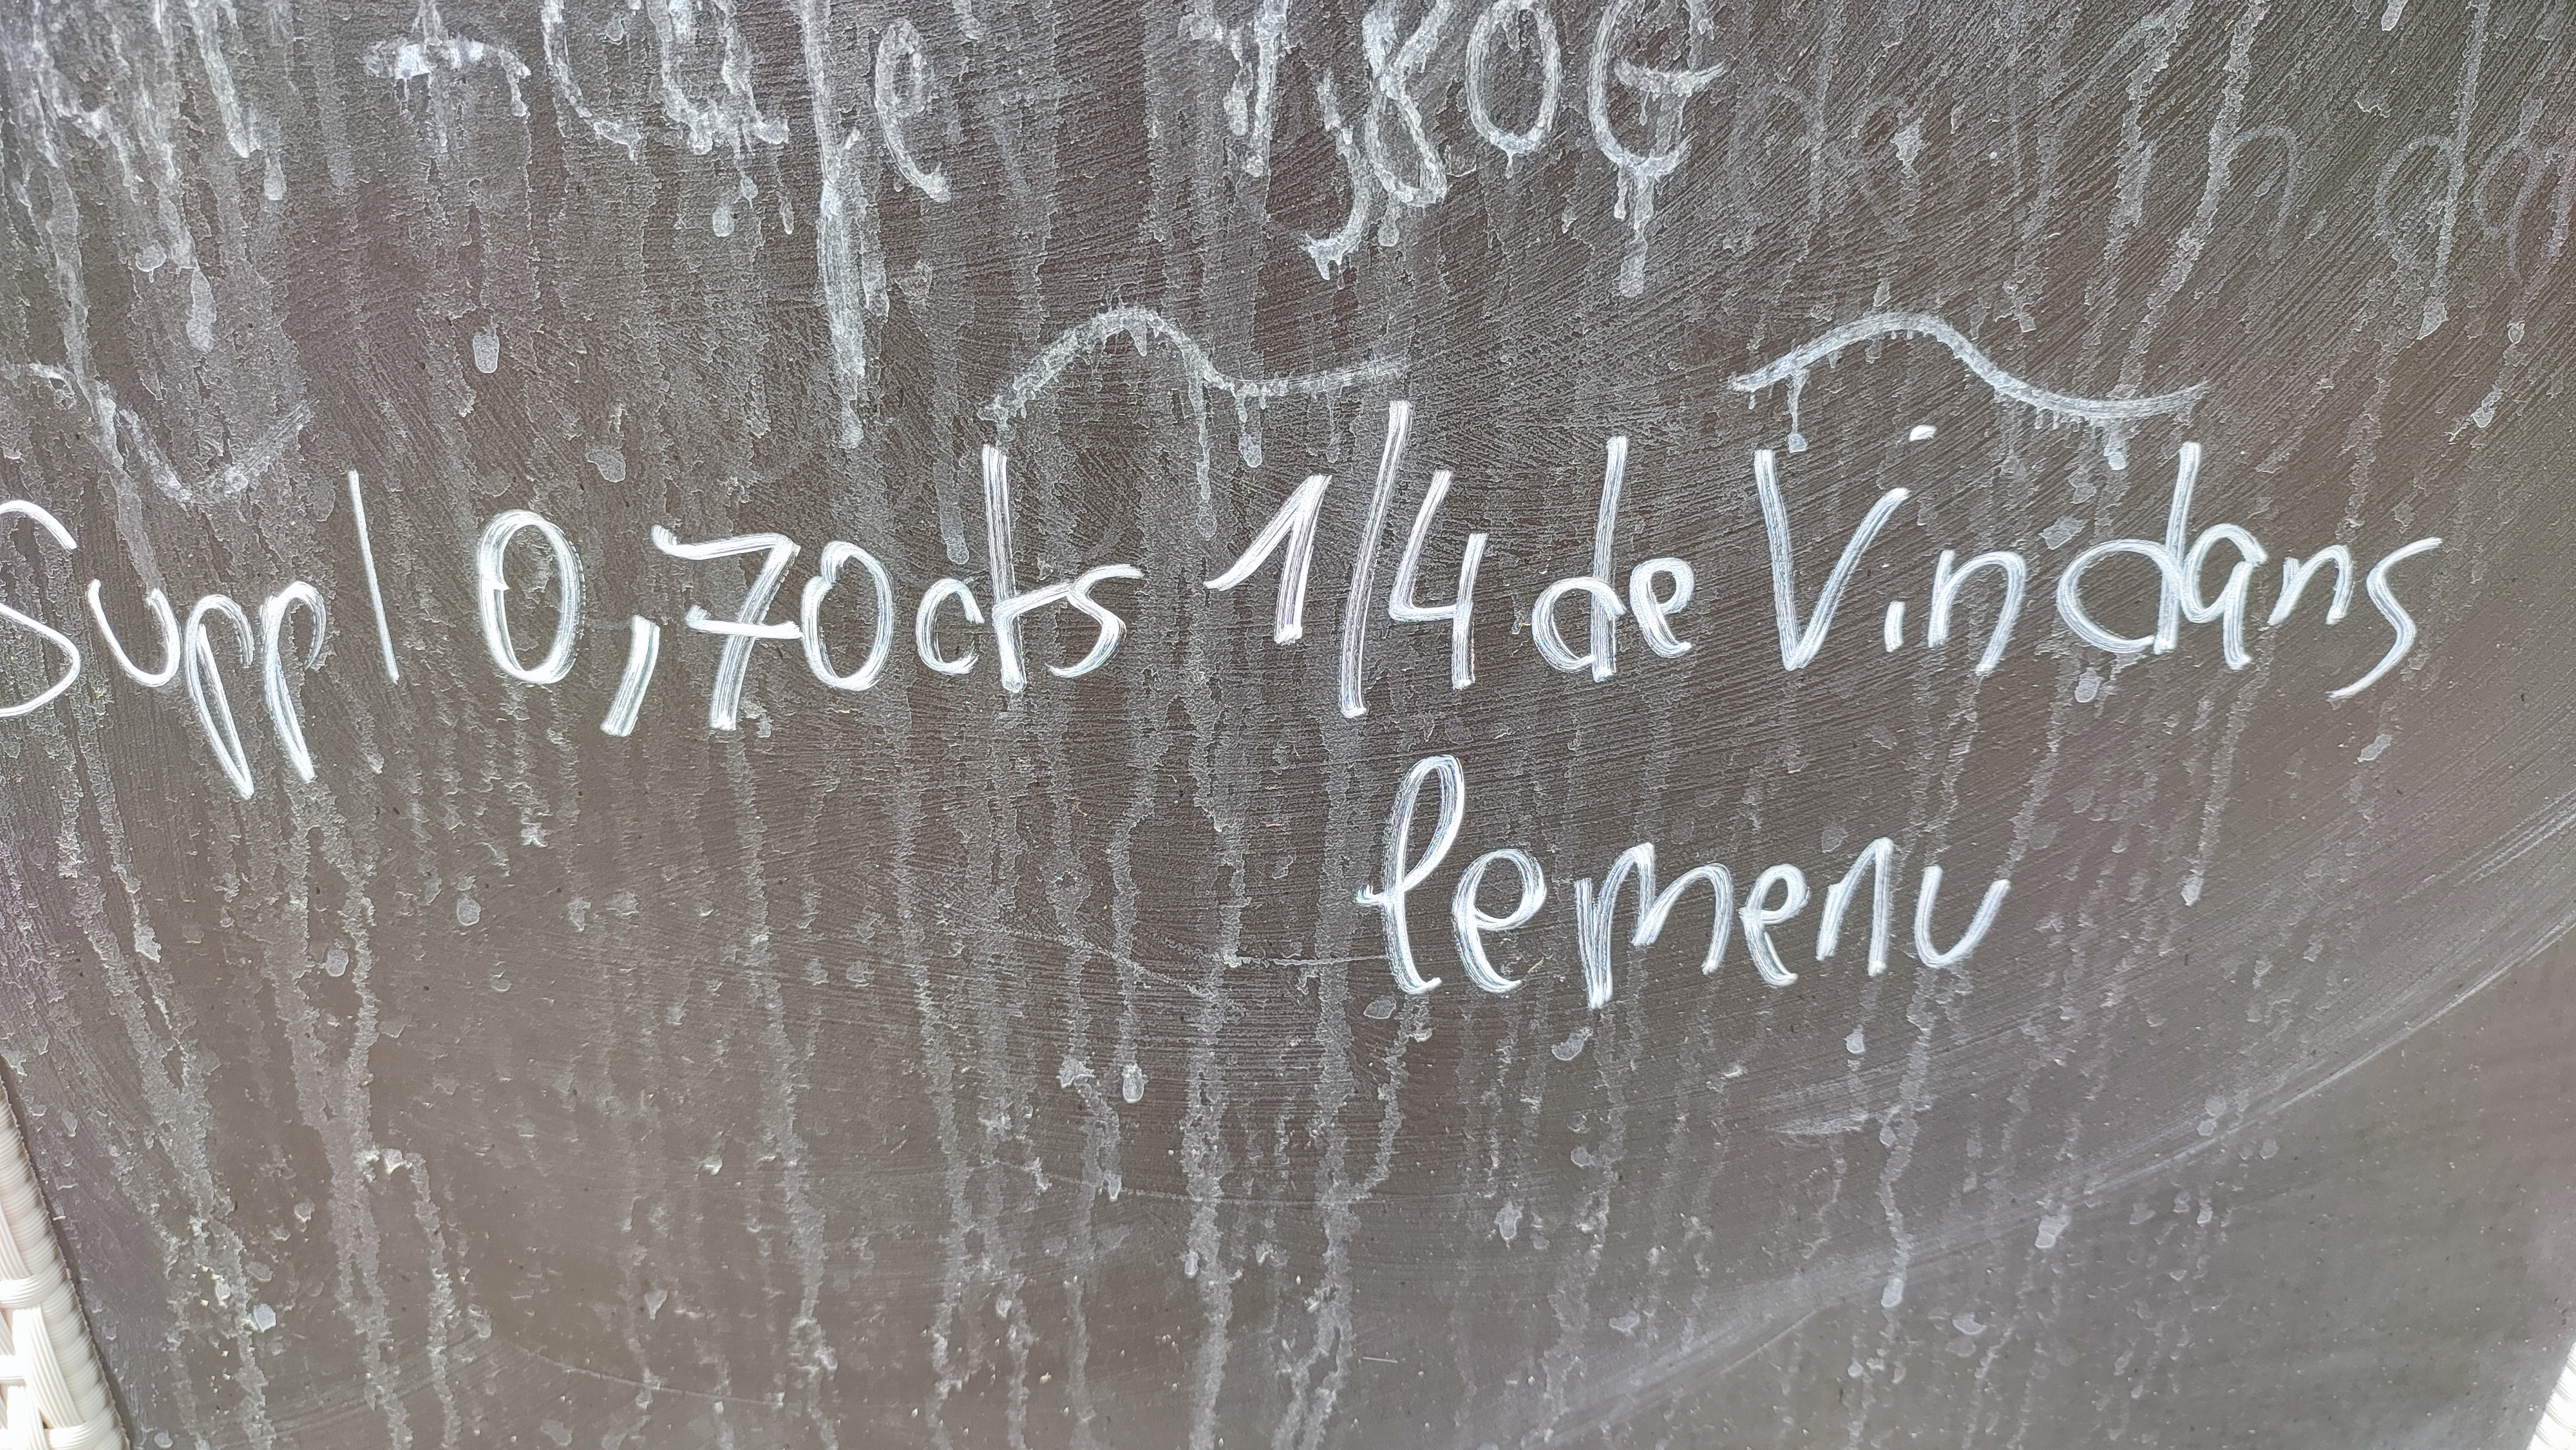 - Café 1,80€
Suppl 0,70cts 1/4 de Vin dans
le menu